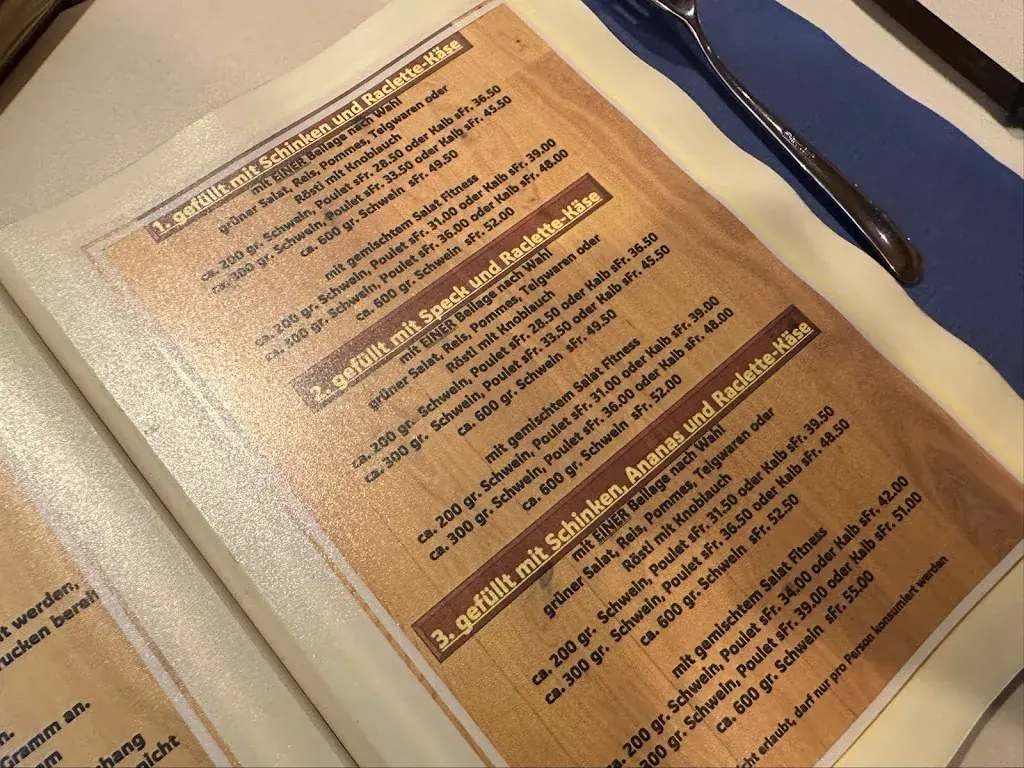 1. gefüllt mit Schinken und Raclette-Käse
mit EINER Beilage nach Wahl
grüner Salat, Reis, Pommes, Teigwaren oder
Rösti mit Knoblauch
ca. 200 gr. Schwein, Poulet sFr. 28.50 oder Kalb sFr. 36.50
ca. 300 gr. Schwein, Poulet sFr. 33.50 oder Kalb sFr. 45.50
ca. 600 gr. Schwein sFr. 49.50
mit gemischtem Salat Fitness
ca. 200 gr. Schwein, Poulet sFr. 31.00 oder Kalb sFr. 39.00
ca. 300 gr. Schwein, Poulet sFr. 36.00 oder Kalb sFr. 48.00
ca. 600 gr. Schwein sFr. 52.00
2. gefüllt mit Speck und Raclette-Käse
mit EINER Beilage nach Wahl
grüner Salat, Reis, Pommes, Teigwaren oder
Rösti mit Knoblauch
ca. 200 gr. Schwein, Poulet sFr. 28.50 oder Kalb sFr. 36.50
ca. 300 gr. Schwein, Poulet sFr. 33.50 oder Kalb sFr. 45.50
ca. 600 gr. Schwein sFr. 49.50
mit gemischtem Salat Fitness
ca. 200 gr. Schwein, Poulet sFr. 31.00 oder Kalb sFr. 39.00
ca. 300 gr. Schwein, Poulet sFr. 36.00 oder Kalb sFr. 48.00
ca. 600 gr. Schwein sFr. 52.00
3. gefüllt mit Schinken, Ananas und Raclette-Käse
mit EINER Beilage nach Wahl
grüner Salat, Reis, Pommes, Teigwaren oder
Rösti mit Knoblauch
ca. 200 gr. Schwein, Poulet sFr. 31.50 oder Kalb sFr. 39.50
ca. 300 gr. Schwein, Poulet sFr. 36.50 oder Kalb sFr. 48.50
ca. 600 gr. Schwein sFr. 52.50
mit gemischtem Salat Fitness
200 gr. Schwein, Poulet sFr. 34.00 oder Kalb sFr. 42.00
300 gr. Schwein, Poulet sFr. 39.00 oder Kalb sFr. 51.00
ca. 600 gr. Schwein sFr. 55.00
erlaubt, darf nur pro Person konsumiert werden
werden,
Gramm an.